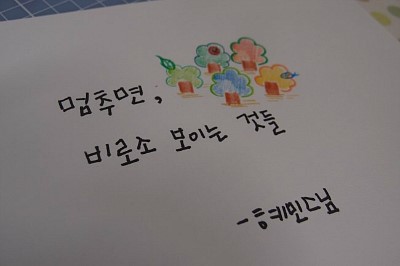 멈추면,
비로소 보이는 것들
-혜민스님